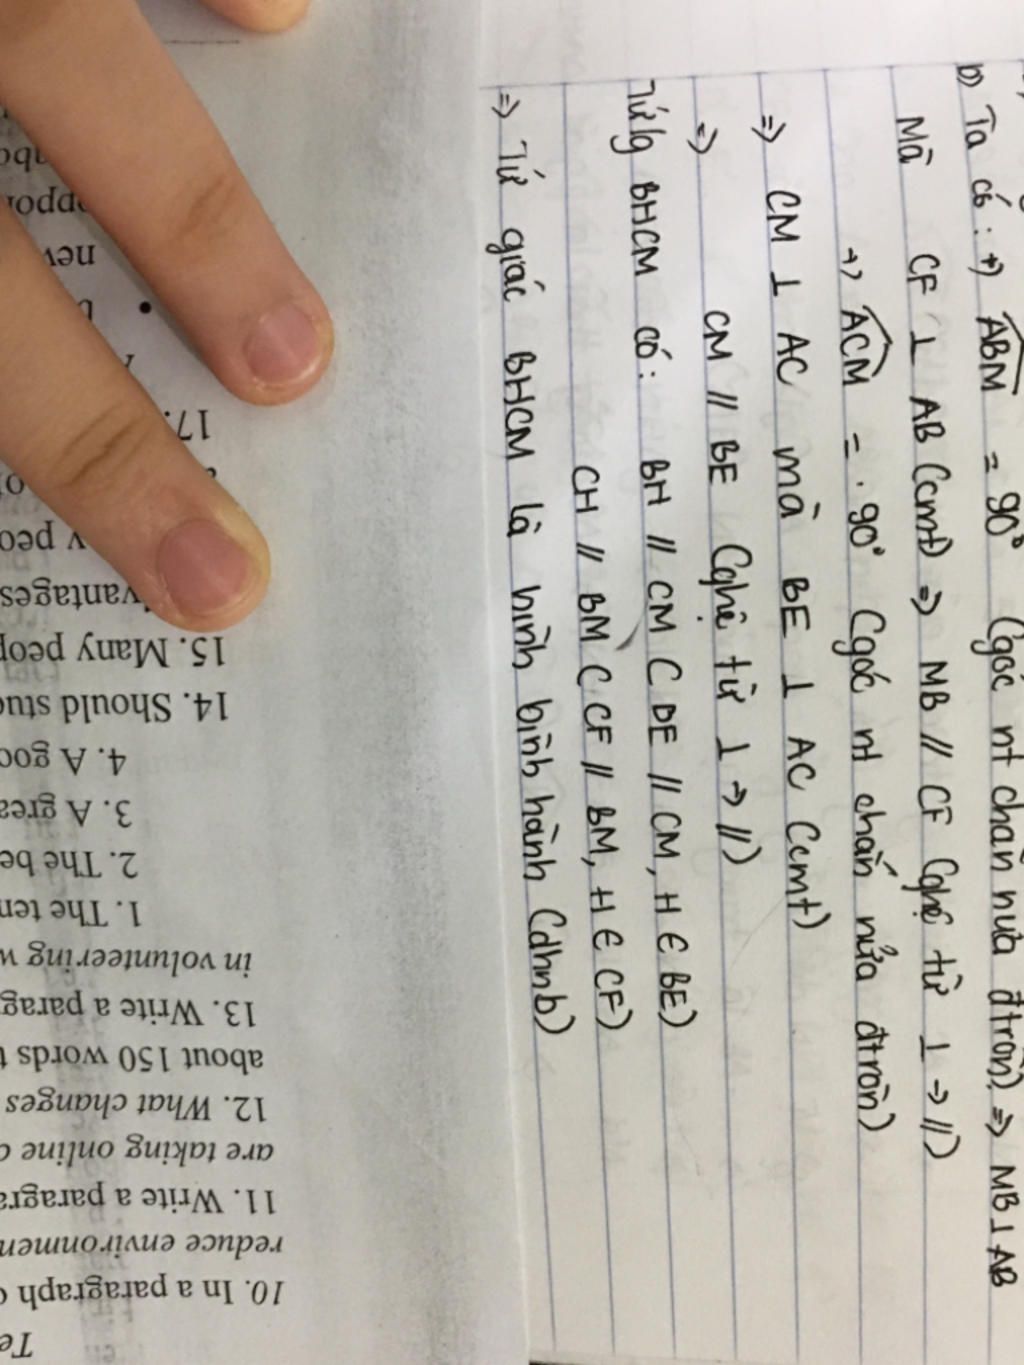 b) Ta có: +) ABM = 90° (góc nt chắn nửa đtròn) => MB ⊥ AB
Mà CF ⊥ AB (cmt) => MB // CF (qhệ từ ⊥ → //)
+) ACM = 90° (góc nt chắn nửa đtròn)
=> CM ⊥ AC mà BE ⊥ AC (cmt)
=> CM // BE (qhệ từ ⊥ → //)
Tứ/g BHCM có: BH // CM ( DE // CM, H ∈ BE)
CH // BM ( CF // BM, H ∈ CF)
=> Tứ giác BHCM là hình bình hành (dhnb)
Te
10. In a paragraph
reduce environmen
11. Write a paragra
are taking online
12. What changes
about 150 words
13. Write a parag
in volunteering
1. The ten
2. The be
3. A grea
4. A goo
14. Should stu
15. Many peop
vantages
peo
17.
new
oppor